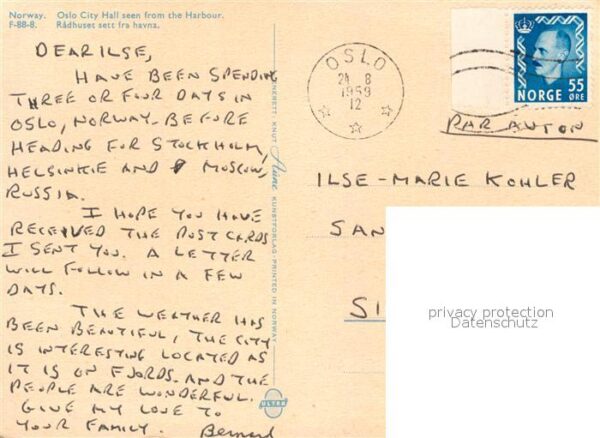 Norway. Oslo City Hall seen from the Harbour.
F-88-8. Rådhuset sett fra havna.
DEAR ILSE,
HAVE BEEN SPENDING
THREE OR FOUR DAYS IN
OSLO, NORWAY. BEFORE
HEADING FOR STOCKHOLM,
HELSINKIE AND MOSCOW,
RUSSIA.
I HOPE YOU HAVE
RECEIVED THE POST CARDS
I SENT YOU. A LETTER
WILL FOLLOW IN A FEW
DAYS.
THE WEATHER HAS
BEEN BEAUTIFUL, THE CITY
IS INTERESTING LOCATED AS
IT IS ON FJORDS. AND THE
PEOPLE ARE WONDERFUL.
GIVE MY LOVE TO
YOUR FAMILY. Bernard
ENERETT: KNUT Aune KUNSTFORLAG - PRINTED IN NORWAY
ULTRA
OSLO
24 8
1959
12
NORGE 55
ØRE
PAR AVION
ILSE-MARIE KOHLER
SAN
SI
privacy protection
Datenschutz